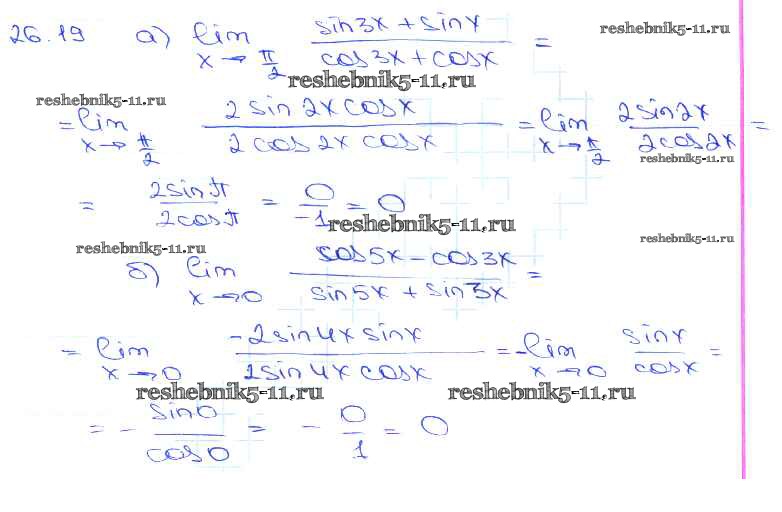 26.19 а) lim x→π/2 (sin3x + sinx)/(cos3x + cosx) =
reshebnik5-11.ru
reshebnik5-11.ru
reshebnik5-11.ru
= lim x→π/2 (2 sin 2x cosx)/(2 cos 2x cosx) = lim x→π/2 (2 sin2x)/(2cos2x) =
reshebnik5-11.ru
= (2sinπ)/(2cosπ) = 0/-1 = 0
reshebnik5-11.ru
reshebnik5-11.ru
reshebnik5-11.ru
б) lim x→0 (cos5x - cos3x)/(sin5x + sin3x) =
= lim x→0 (-2sin4x sinx)/(2sin4x cosx) = -lim x→0 sinx/cosx =
reshebnik5-11.ru
reshebnik5-11.ru
= - sin0/cos0 = - 0/1 = 0